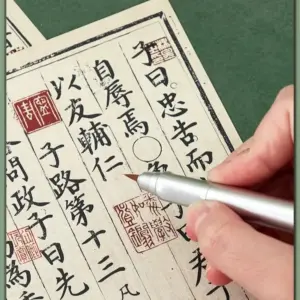 子曰忠告而
自辱焉〇
以友輔仁
子路第十三 凡
問政子曰先
為